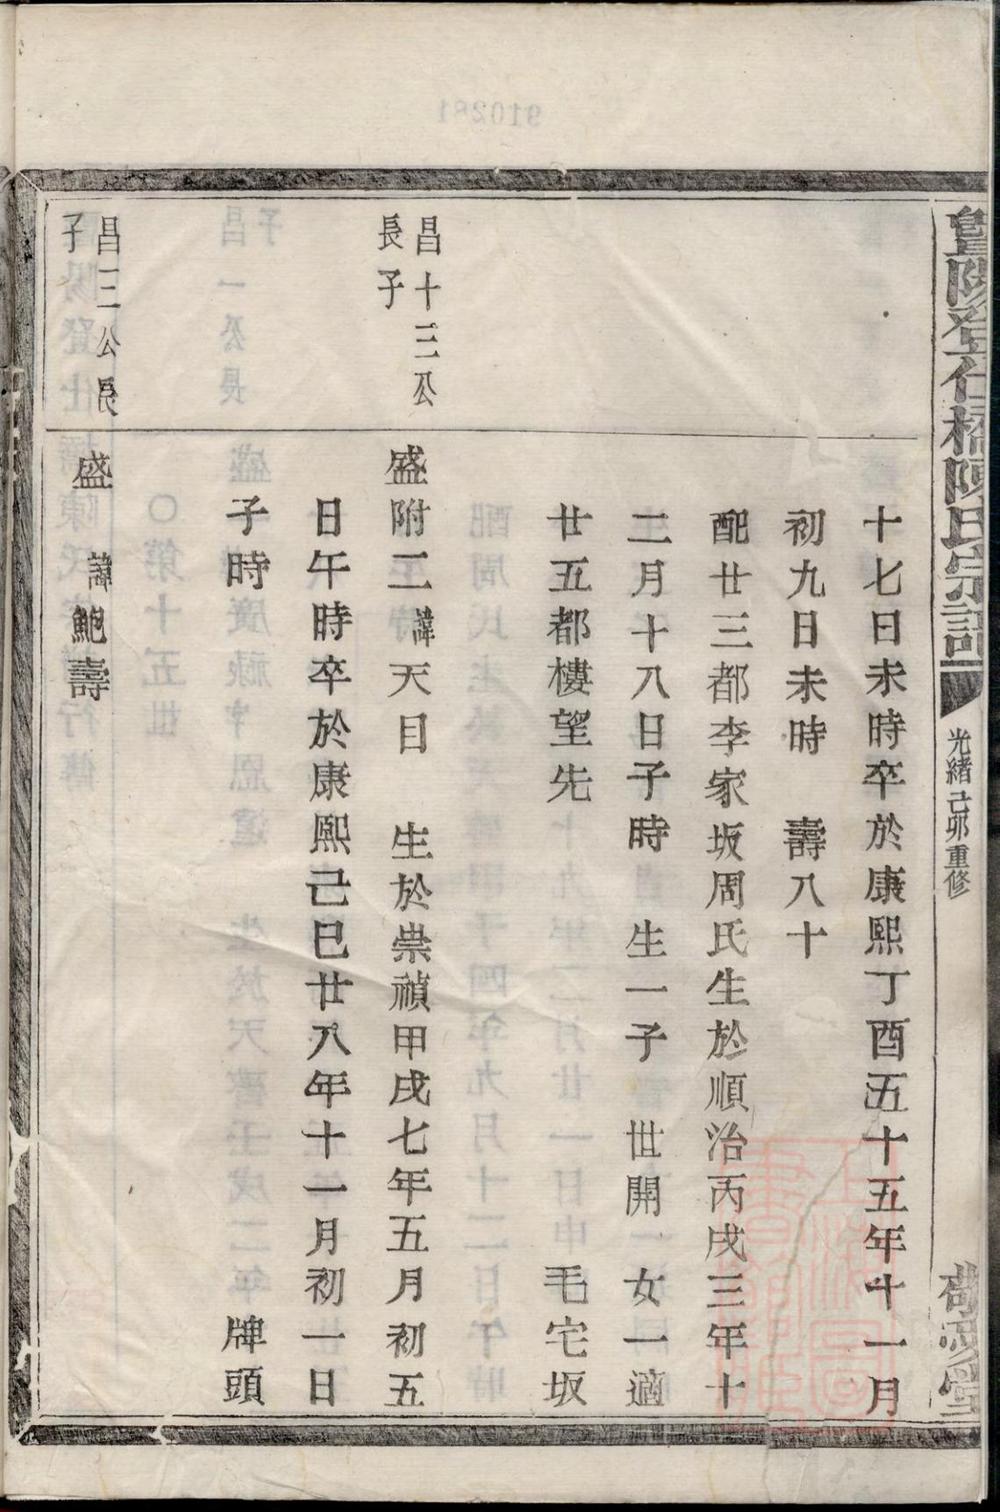 暨陽登仕橋陳氏宗譜
光緒己卯重修
十七日未時卒於康熙丁酉五十五年十一月
初九日未時 壽八十
配廿三都李家坂周氏生於順治丙戌三年十
二月十八日子時 生一子 世開 女一適
廿五都樓望先 毛宅坂
昌十三公
長子
盛附二諱天目 生於崇禎甲戌七年五月初五
日午時卒於康熙己巳廿八年十一月初一日
子時 牌頭
昌三公長
子
盛 諱鮑壽